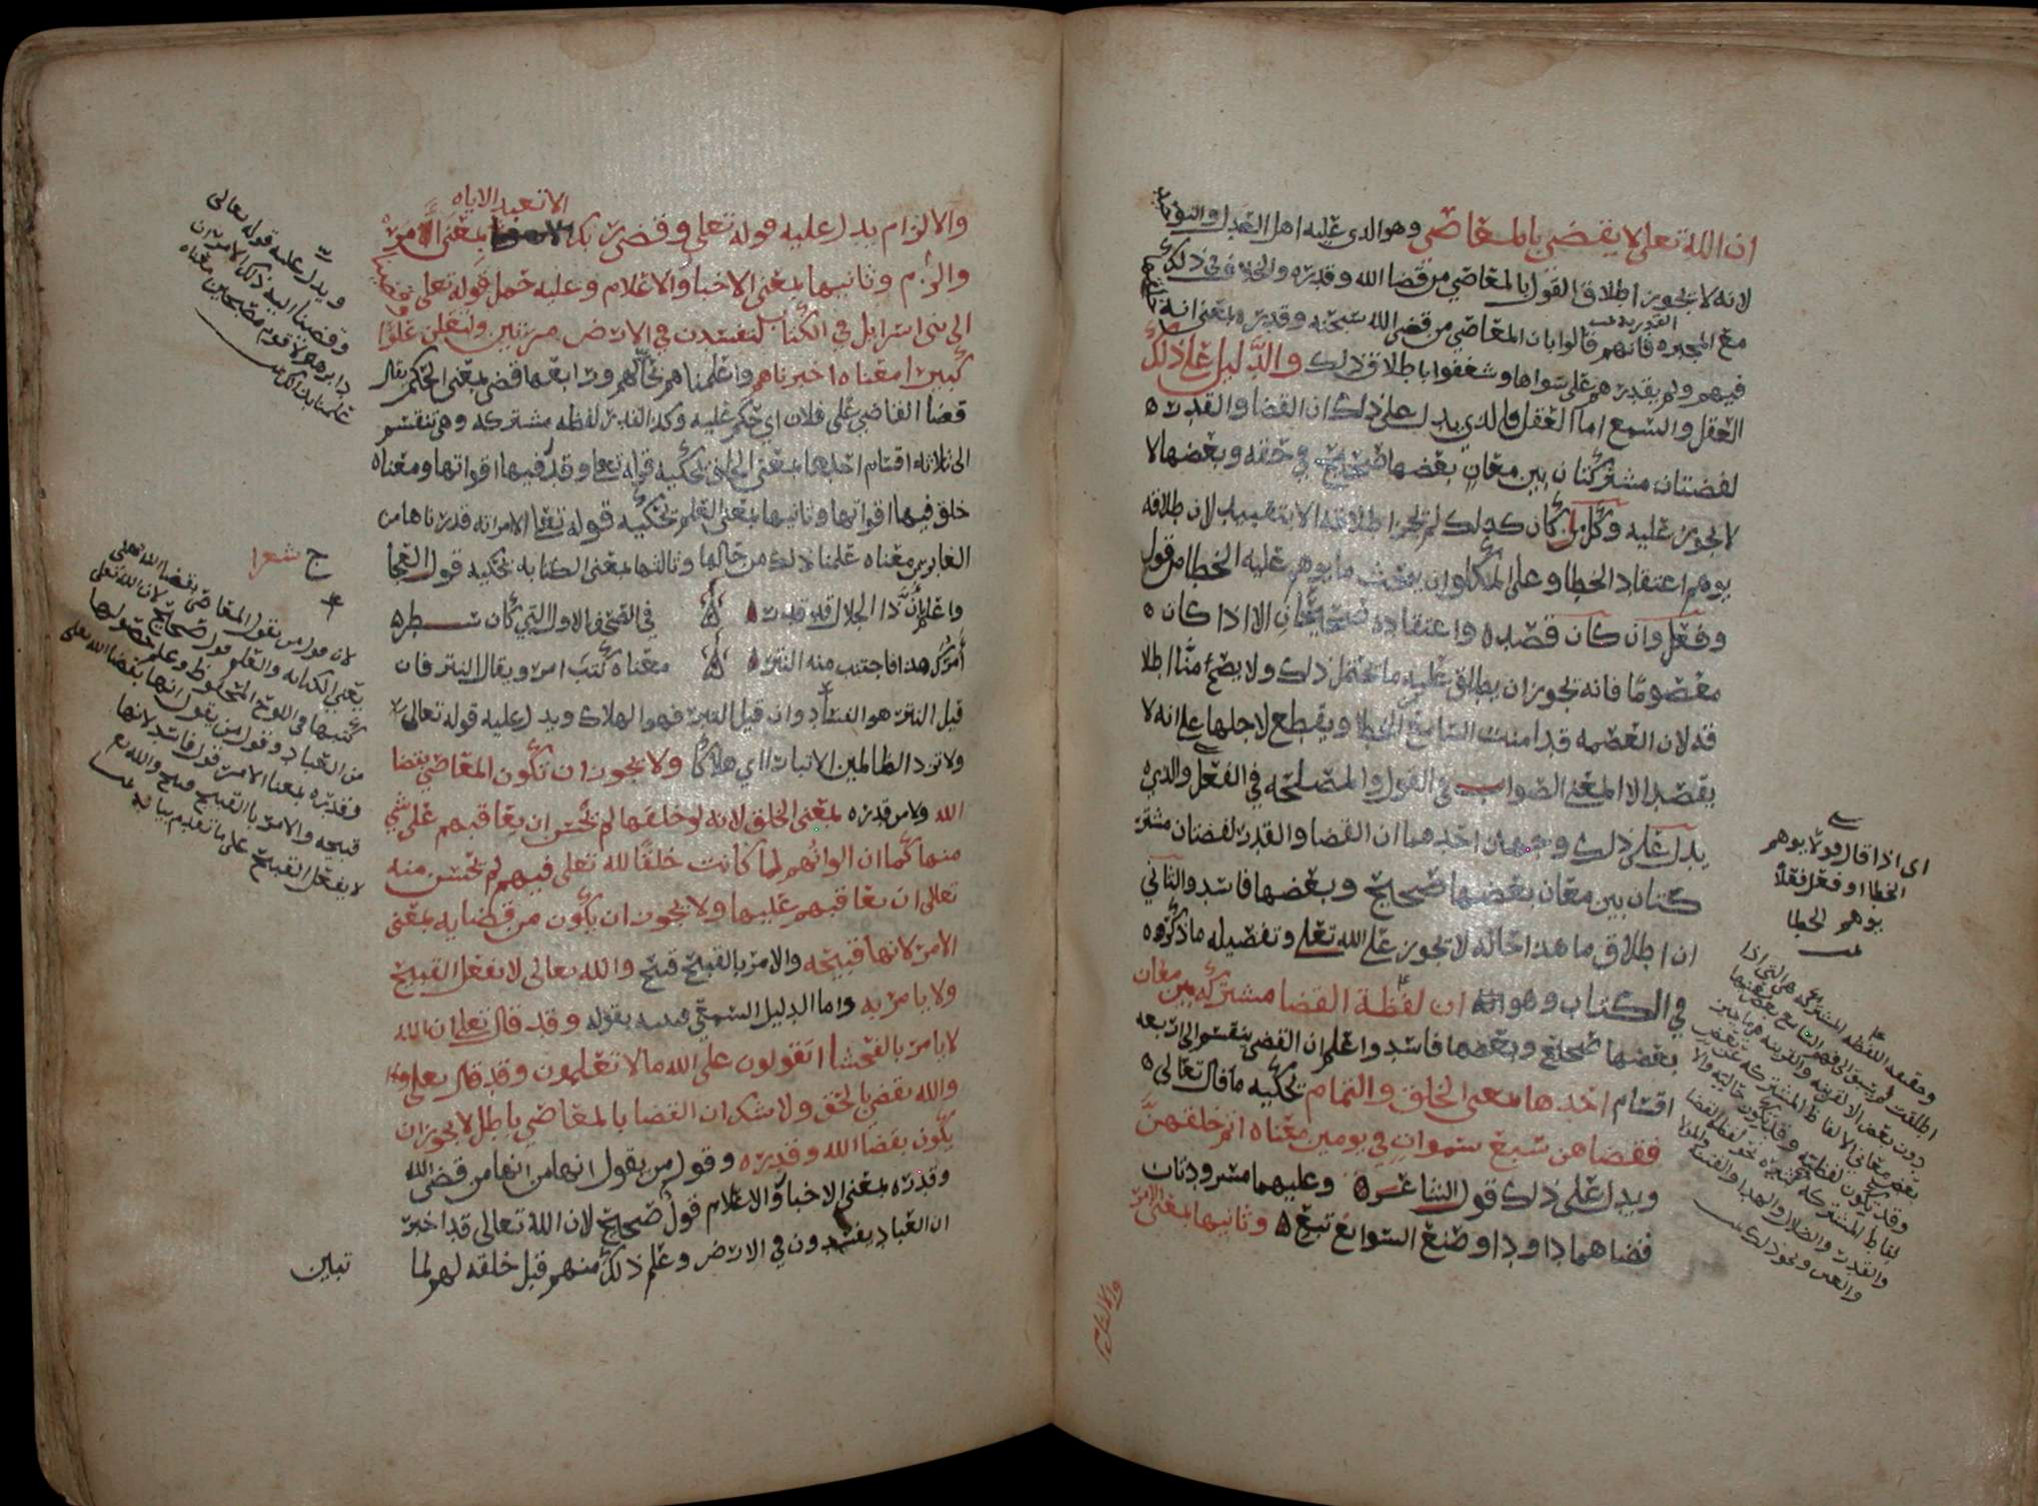 ان الله تعلى لا يقضي بالمعاصي وهو الذي عليه اهل العدل والتوحيد
لانه لا يجوز اطلاق القول بالمعاصي من قضا الله وقدره والخلاف في ذلك
مع المجبره القدريه فانهم قالوا بان المعاصي من قضى الله سبحنه وقدره بمعنى انه
فيهم ولم يقدرهم على سواها وشغفوا باطلاق ذلك والدليل على ذلك
العقل والسمع اما العقل فالذي يدل على ذلك ان القضا والقدر
لفضتان مشتركتان بين معان بعضها صحيح في حقه وبعضها لا
لا يجوز عليه وكل ما كان كذلك لم يجز اطلاقه الا بتقييد لان طلاقه
يوهم اعتقاد الخطا وعلى المتكلم ان يمحث ما يوهم عليه الخطا من قول
وفعل وان كان قصده واعتقاده صحيحان الا اذا كان
معصوما فانه يجوز ان يطلق عليه ما يحتمل ذلك ولا يصح منا اطلا
قه لان العصمه قد امنت السامع الخطا ويقطع لاجلها على انه لا
يقصد الا المعنى الصواب في القول والمصلحه في الفعل والذي
يدل على ذلك وجهان احدهما ان القضا والقدر لفضتان مشتر
كتان بين معان بعضها صحيح وبعضها فاسد والثاني
ان اطلاق ما هذا حاله لا يجوز على الله تعلى وتفصيله ما ذكره
في الكتاب وهو انه ان لفظة القضا مشتركه بين معان
بعضها صحيح وبعضها فاسد واعلم ان القضى ينقسم الى اربعه
اقسام احدها بمعنى الخلق والتمام يحكيه ما قال تعالى
فقضاهن سبع سموات في يومين معناه اتم خلقهن
ويدل على ذلك قول الشاعر وعليهما مسرودتان
قضاهما داود او صنع السوابغ تبع وثانيها بمعنى الامر
والالزام
اى اذا قال قولا يوهم
الخطا او فعل فعلا
يوهم الخطا
وحقيقه اللفظه المشتركه هي التي اذا
اطلقت لم يسبق الى فهم السامع بعض معنيها
دون بعض الا لقرينه
والقدر والضلال والهدا والفتنه
والالزام يدل عليه قوله تعلى وقضى ربك الا تعبدوا الا اياه بمعنى امر
والزم وثانيها بمعنى الاخبار والاعلام وعليه حمل قوله تعلى وقضينا
الى بنى اسرايل في الكتاب لتفسدن في الارض مرتين ولتعلن علوا
كبيرا معناه اخبرناهم واعلمناهم بحالهم ورابعها قضى بمعنى الحكم يقال
قضا القاضي على فلان اي حكم عليه وكذا القدر لفظه مشتركه وهي تنقسم
الى ثلاثه اقسام احدها بمعنى الخلق يحكيه قوله تعلى وقدر فيها اقواتها ومعناه
خلق فيها اقواتها وثانيها بمعنى العلم يحكيه قوله تعلى الا امراته قدرناها من
الغابرين معناه علمنا ذلك من حالها وثالثها بمعنى الكتابه يحكيه قول العجا
ج شعرا
واعلم بان ذا الجلال قد قدر في الصحف الاولى التي كان سطر
امرك هذا فاجتنب منه النتر معناه كتب امر ويقال النتر فان
قيل النتر هو الفساد وان قيل التبر فهو الهلاك ويدل عليه قوله تعالى
ولا تزد الظالمين الا تبارا اي هلاكا ولا يجوز ان تكون المعاصي بقضا
الله ولا من قدره بمعنى الخلق لانه لو خلقها لم يحسن ان يعاقبهم على شي
منها كما ان الوانهم لما كانت خلقا لله تعلى فيهم لم يحسن منه
تعالى ان يعاقبهم عليها ولا يجوز ان يكون من قضايه بمعنى
الامر لانها قبيحه والامر بالقبيح قبيح والله تعالى لا يفعل القبيح
ولا يامر به واما الدليل السمعي فبينه بقوله وقد قال تعلى ان الله
لا يامر بالفحشا اتقولون على الله ما لا تعلمون وقد قال تعلى
والله يقضي بالحق ولا شك ان القضا بالمعاصي باطل لا يجوز ان
يكون بقضا الله وقدره وقول من يقول انها من قضى الله
وقدره بمعنى الاخبار والاعلام قول صحيح لان الله تعالى قد اخبر
ان العباد يفسدون في الارض وعلم ذلك منهم قبل خلقه لهم لما
تبين
ويدل عليه قوله تعالى
وقضينا اليه ذلك الامر ان
دابر هولا مقطوع مصبحين معناه
لان قول من يقول المعاصي بقضا الله تعلى
بمعنى الكتابه والعلم قول صحيح لان الله تعلى
كتبها في اللوح المحفوظ وعلم حصولها
من العباد وقول من يقول انها بقضا الله تعلى
وقدره بمعنا الامر قول فاسد لانها
قبيحه والامر بالقبيح قبيح والله تع
لا يفعل القبيح على ما تقدم بيانه